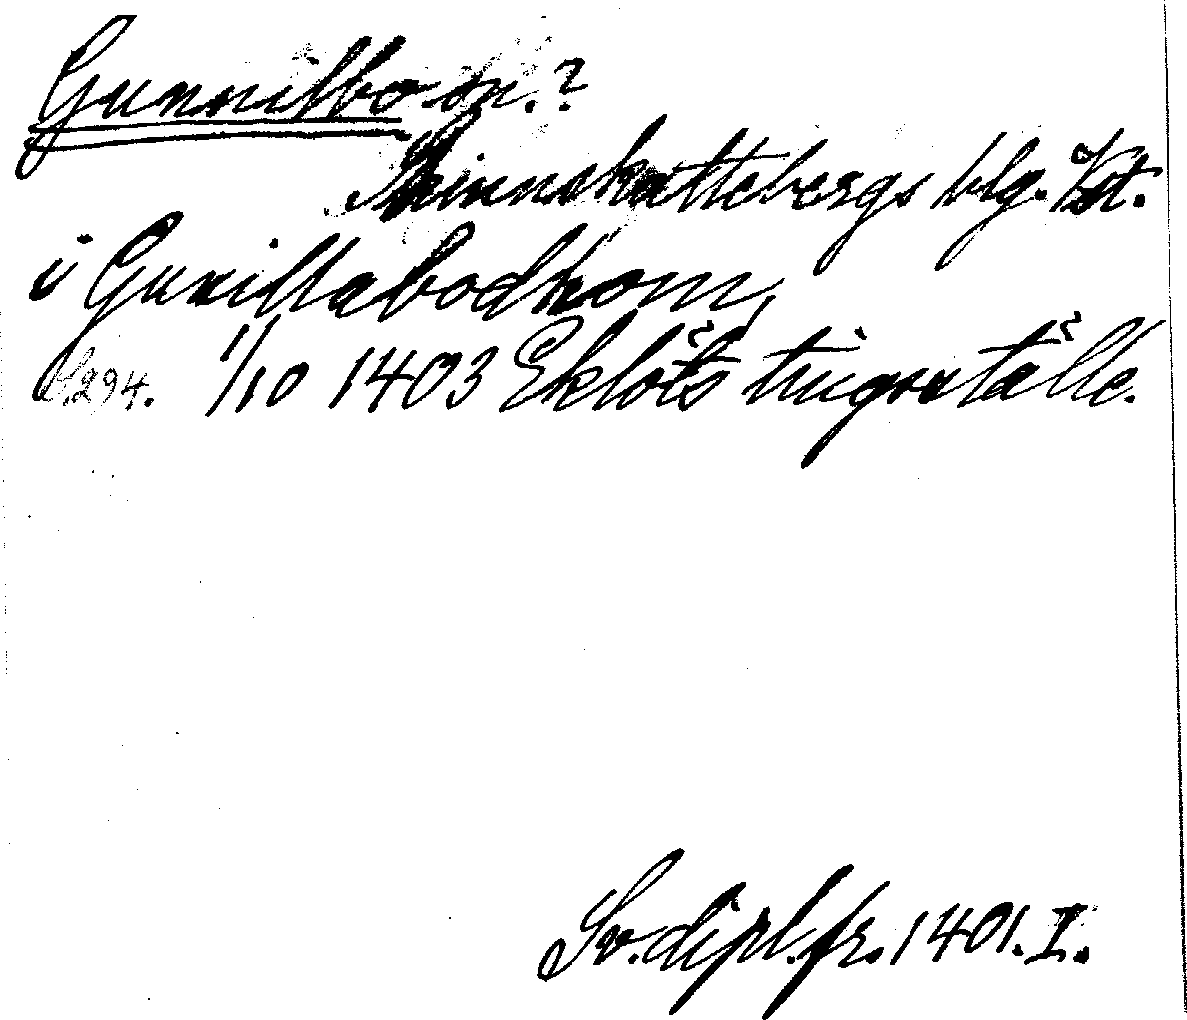 Gunnilbo sn.?
Skinnskattebergs blg. Vst.
i Gunillabodhom,
S. 294. 1/10 1403 Eklöts tingsställe.
Sv. dipl. fr. 1401. I.